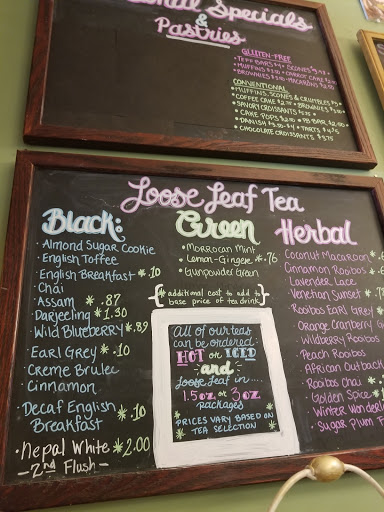 Specials
&
Pastries
GLUTEN-FREE
TEFF BARS $4 • SCONES
MUFFINS $3.00 • CARROT CAKE
BROWNIES • MACARONS $2.00
CONVENTIONAL
• MUFFINS, SCONES & CRUFFLES
COFFEE CAKE $2.75 • BROWNIES
SAVORY CROISSANTS
• CAKE POPS $2.00 • PB BAR $2.00
• DANISH • TARTS
• CHOCOLATE CROISSANTS $3.75
Loose Leaf Tea
Black:
• Almond Sugar Cookie
• English Toffee
• English Breakfast * .10
• Chai
• Assam * .87
• Darjeeling * 1.30
• Wild Blueberry * .89
• Earl Grey * .10
• Creme Brulee
• Cinnamon
• Decaf English
Breakfast * .10
• Nepal White * 2.00
- 2nd Flush -
Green
• Morrocan Mint
• Lemon-Gingere * .76
• Gunpowder Green
* additional cost to add to
base price of tea drink
All of our teas
can be ordered:
HOT or ICED
and
loose leaf in....
1.5oz or 3oz
packages
* PRICES VARY BASED ON
TEA SELECTION *
Herbal
Coconut Macaroon
Cinnamon Rooibos
Lavender Lace
Venetian Sunset
Rooibos Earl Grey
Orange Cranberry
Wildberry Rooibos
Peach Rooibos
African Outback
• Rooibos Chai
• Golden Spice
• Winter
• Sugar Plum